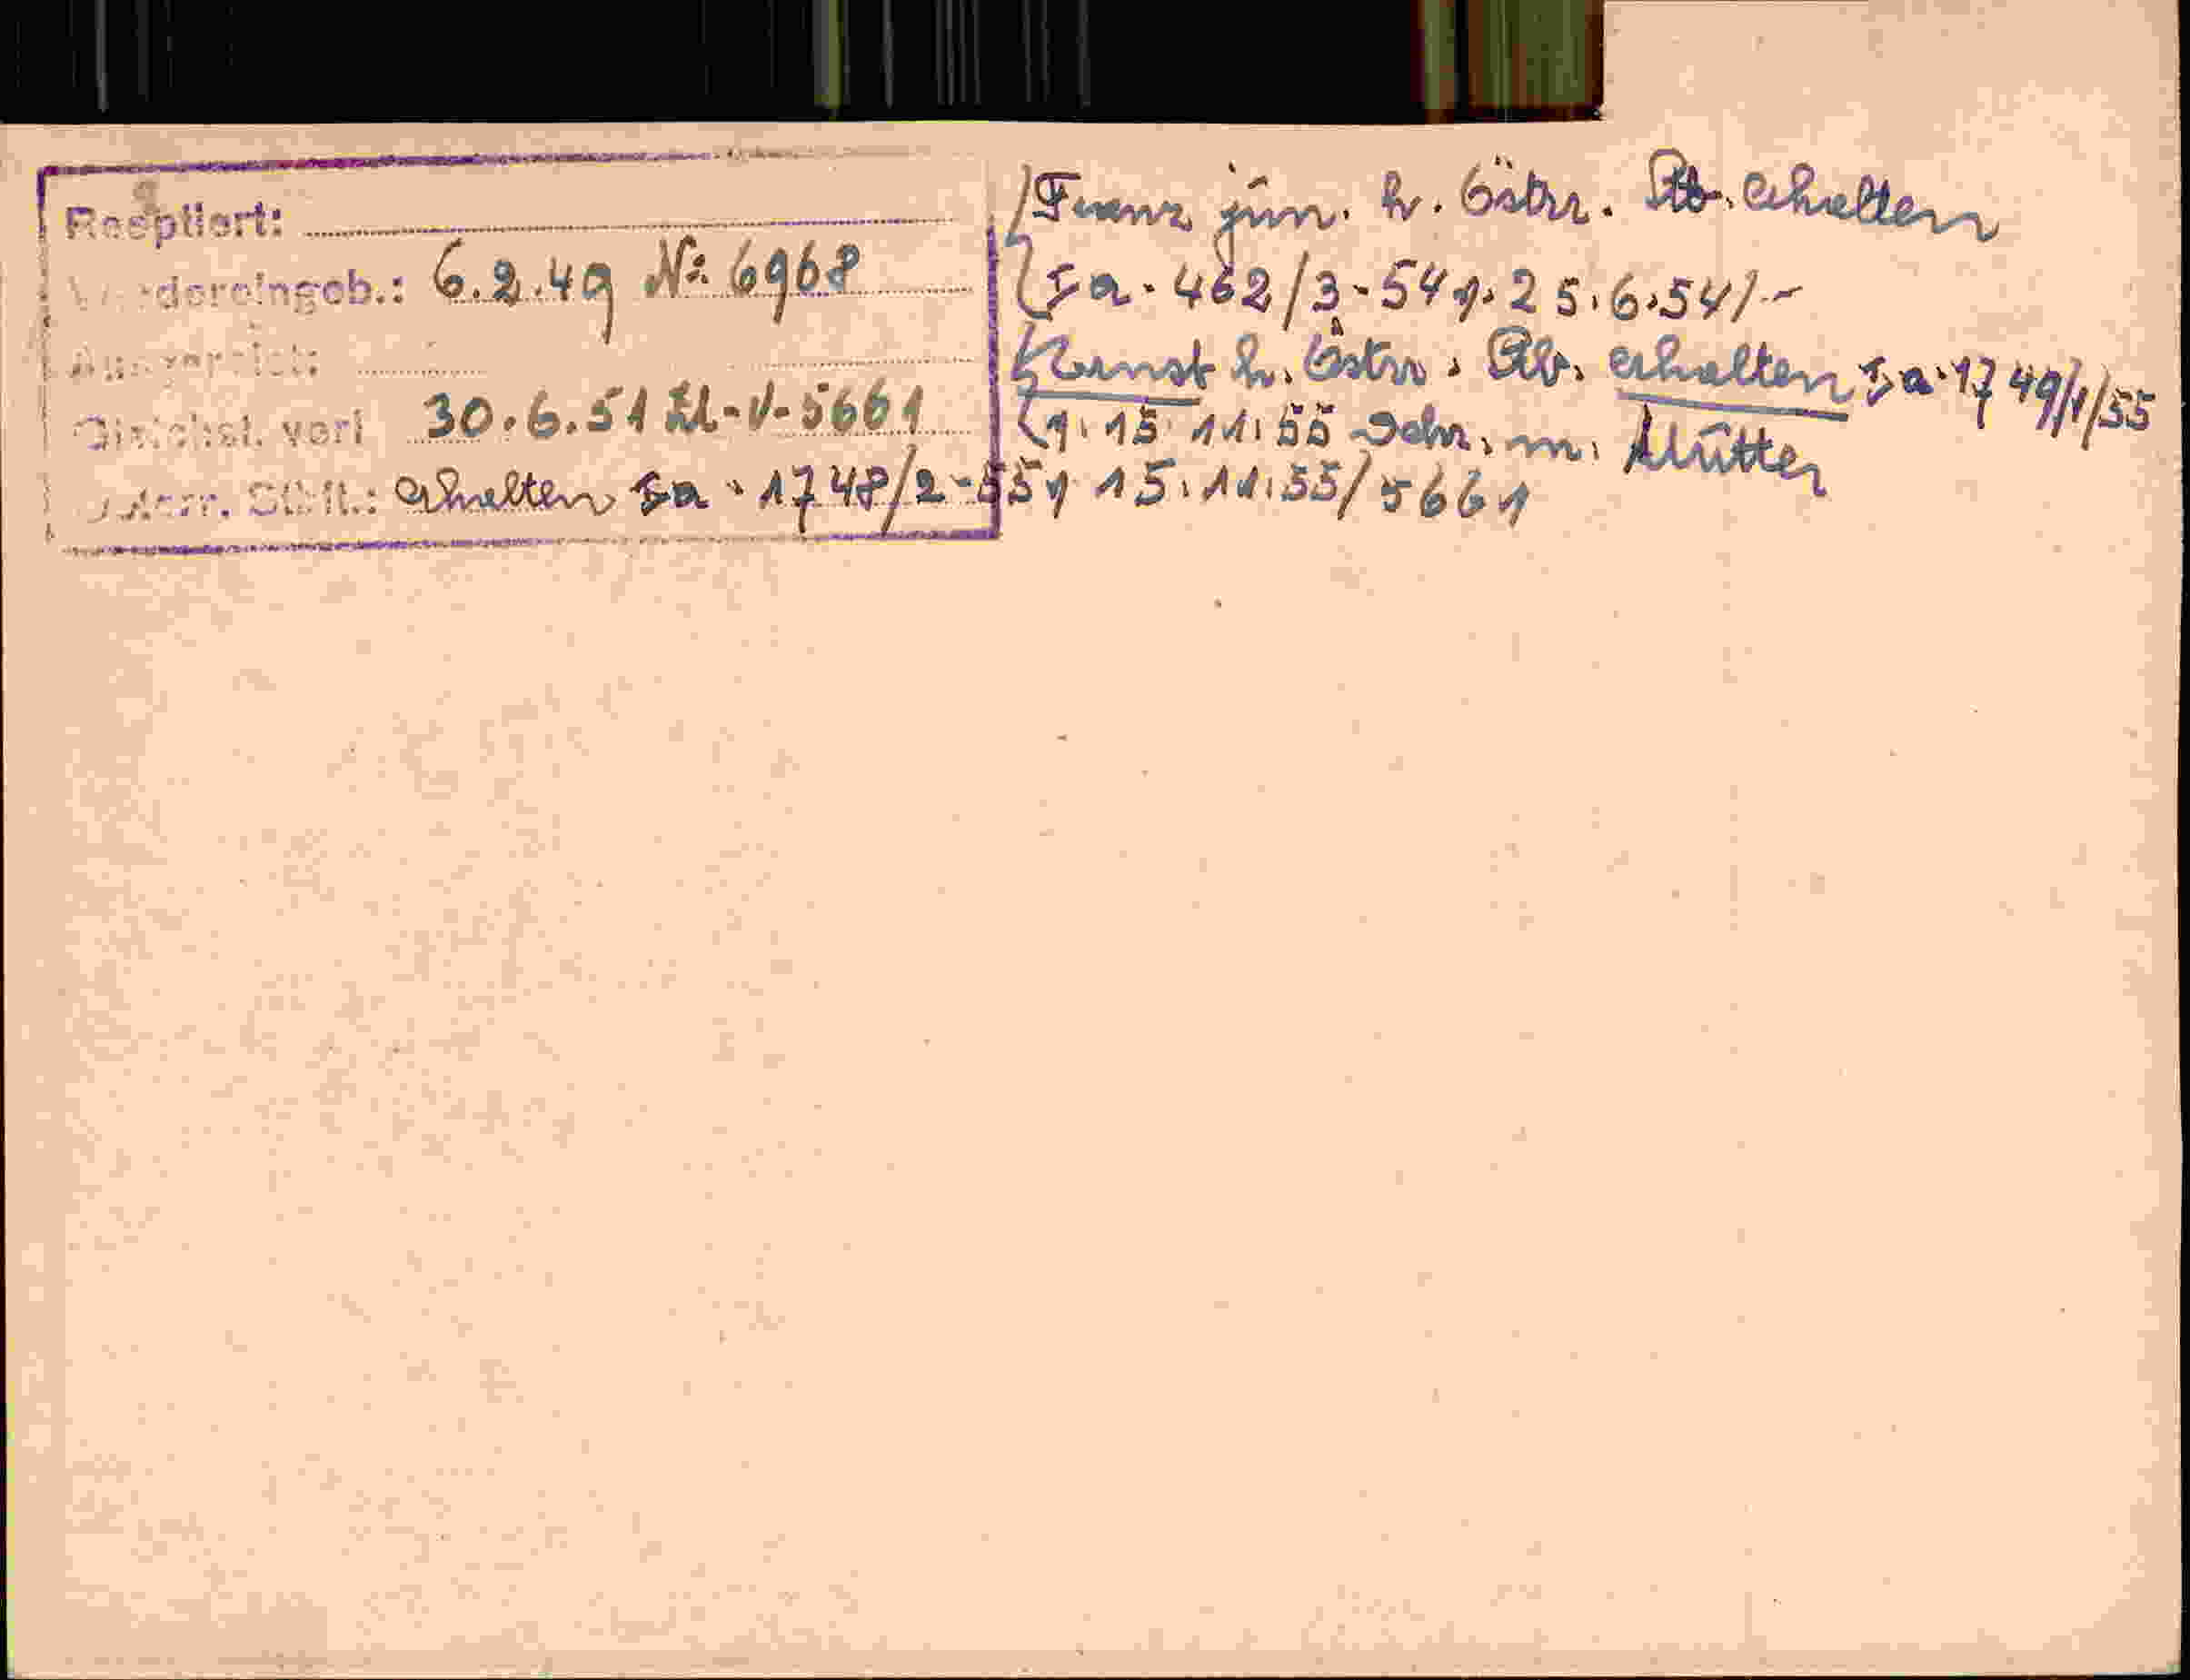 Reoptiert:
Wiedereingeb.: 6.2.49 No: 6968
Ausgereist:
Gleichst. verl 30.6.51 Zl-V-5661
Österr. Stbft.: erhalten Ia - 1748/2-55 v. 15.11.55/5661
Franz jun. h. Östrr. Stb. erhalten
Ia - 462/3-54 v. 25.6.54/-
Ernst h. Östrr. Stb. erhalten Ia - 1749/1/55
v. 15.11.55 m. Mutter